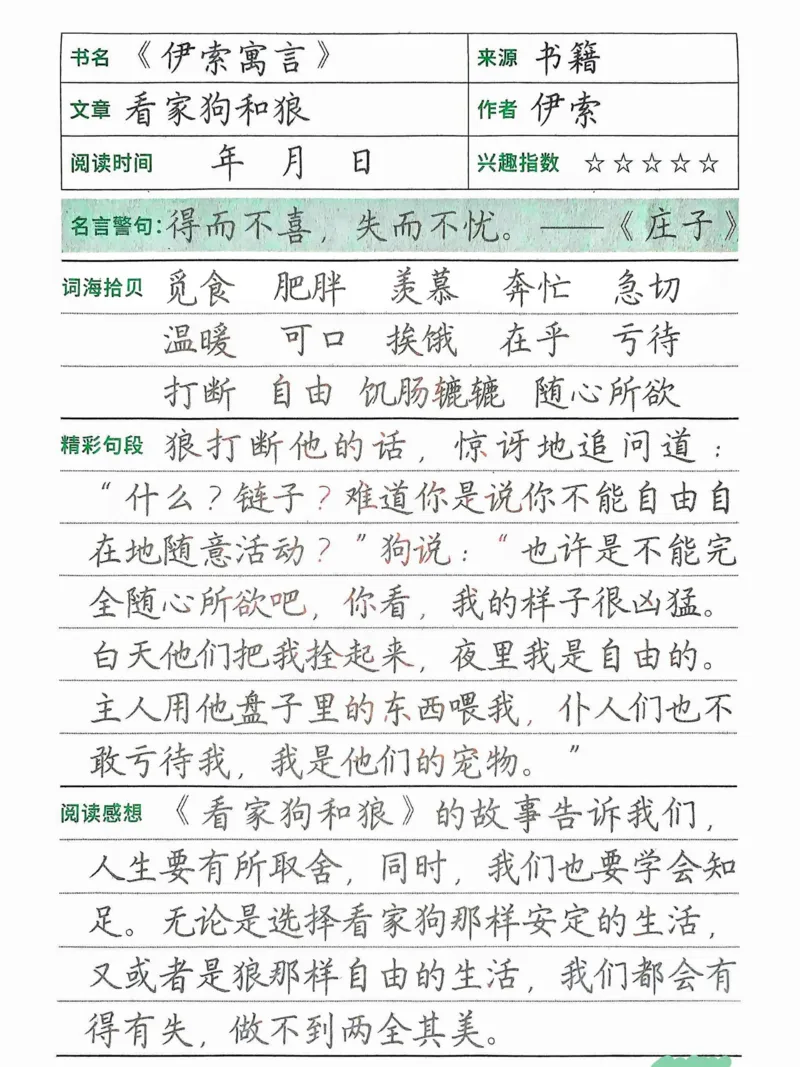 书名 《伊索寓言》 来源 书籍
文章 看家狗和狼 作者 伊索
阅读时间 年 月 日 兴趣指数 ☆☆☆☆☆
名言警句：得而不喜，失而不忧。——《庄子》
词海拾贝 觅食 肥胖 羡慕 奔忙 急切
温暖 可口 挨饿 在乎 亏待
打断 自由 饥肠辘辘 随心所欲
精彩句段 狼打断他的话，惊讶地追问道：
“什么？链子？难道你是说你不能自由自
在地随意活动？”狗说：“也许是不能完
全随心所欲吧，你看，我的样子很凶猛。
白天他们把我拴起来，夜里我是自由的。
主人用他盘子里的东西喂我，仆人们也不
敢亏待我，我是他们的宠物。”
阅读感想 《看家狗和狼》的故事告诉我们，
人生要有所取舍，同时，我们也要学会知
足。无论是选择看家狗那样安定的生活，
又或者是狼那样自由的生活，我们都会有
得有失，做不到两全其美。